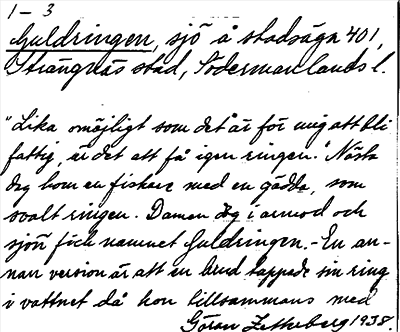 1-3
Guldringen, sjö å stadsäga 401,
Strängnäs stad, Södermanlands l.
"Lika omöjligt som det är för mig att bli
fattig, är det att få igen ringen." Nästa
dag kom en fiskare med en gädda, som
svalt ringen. Damen dog i armod och
sjön fick namnet Guldringen. - En an-
nan version är att en brud tappade sin ring
i vattnet då hon tillsammans med
Göran Zetterberg 1938.